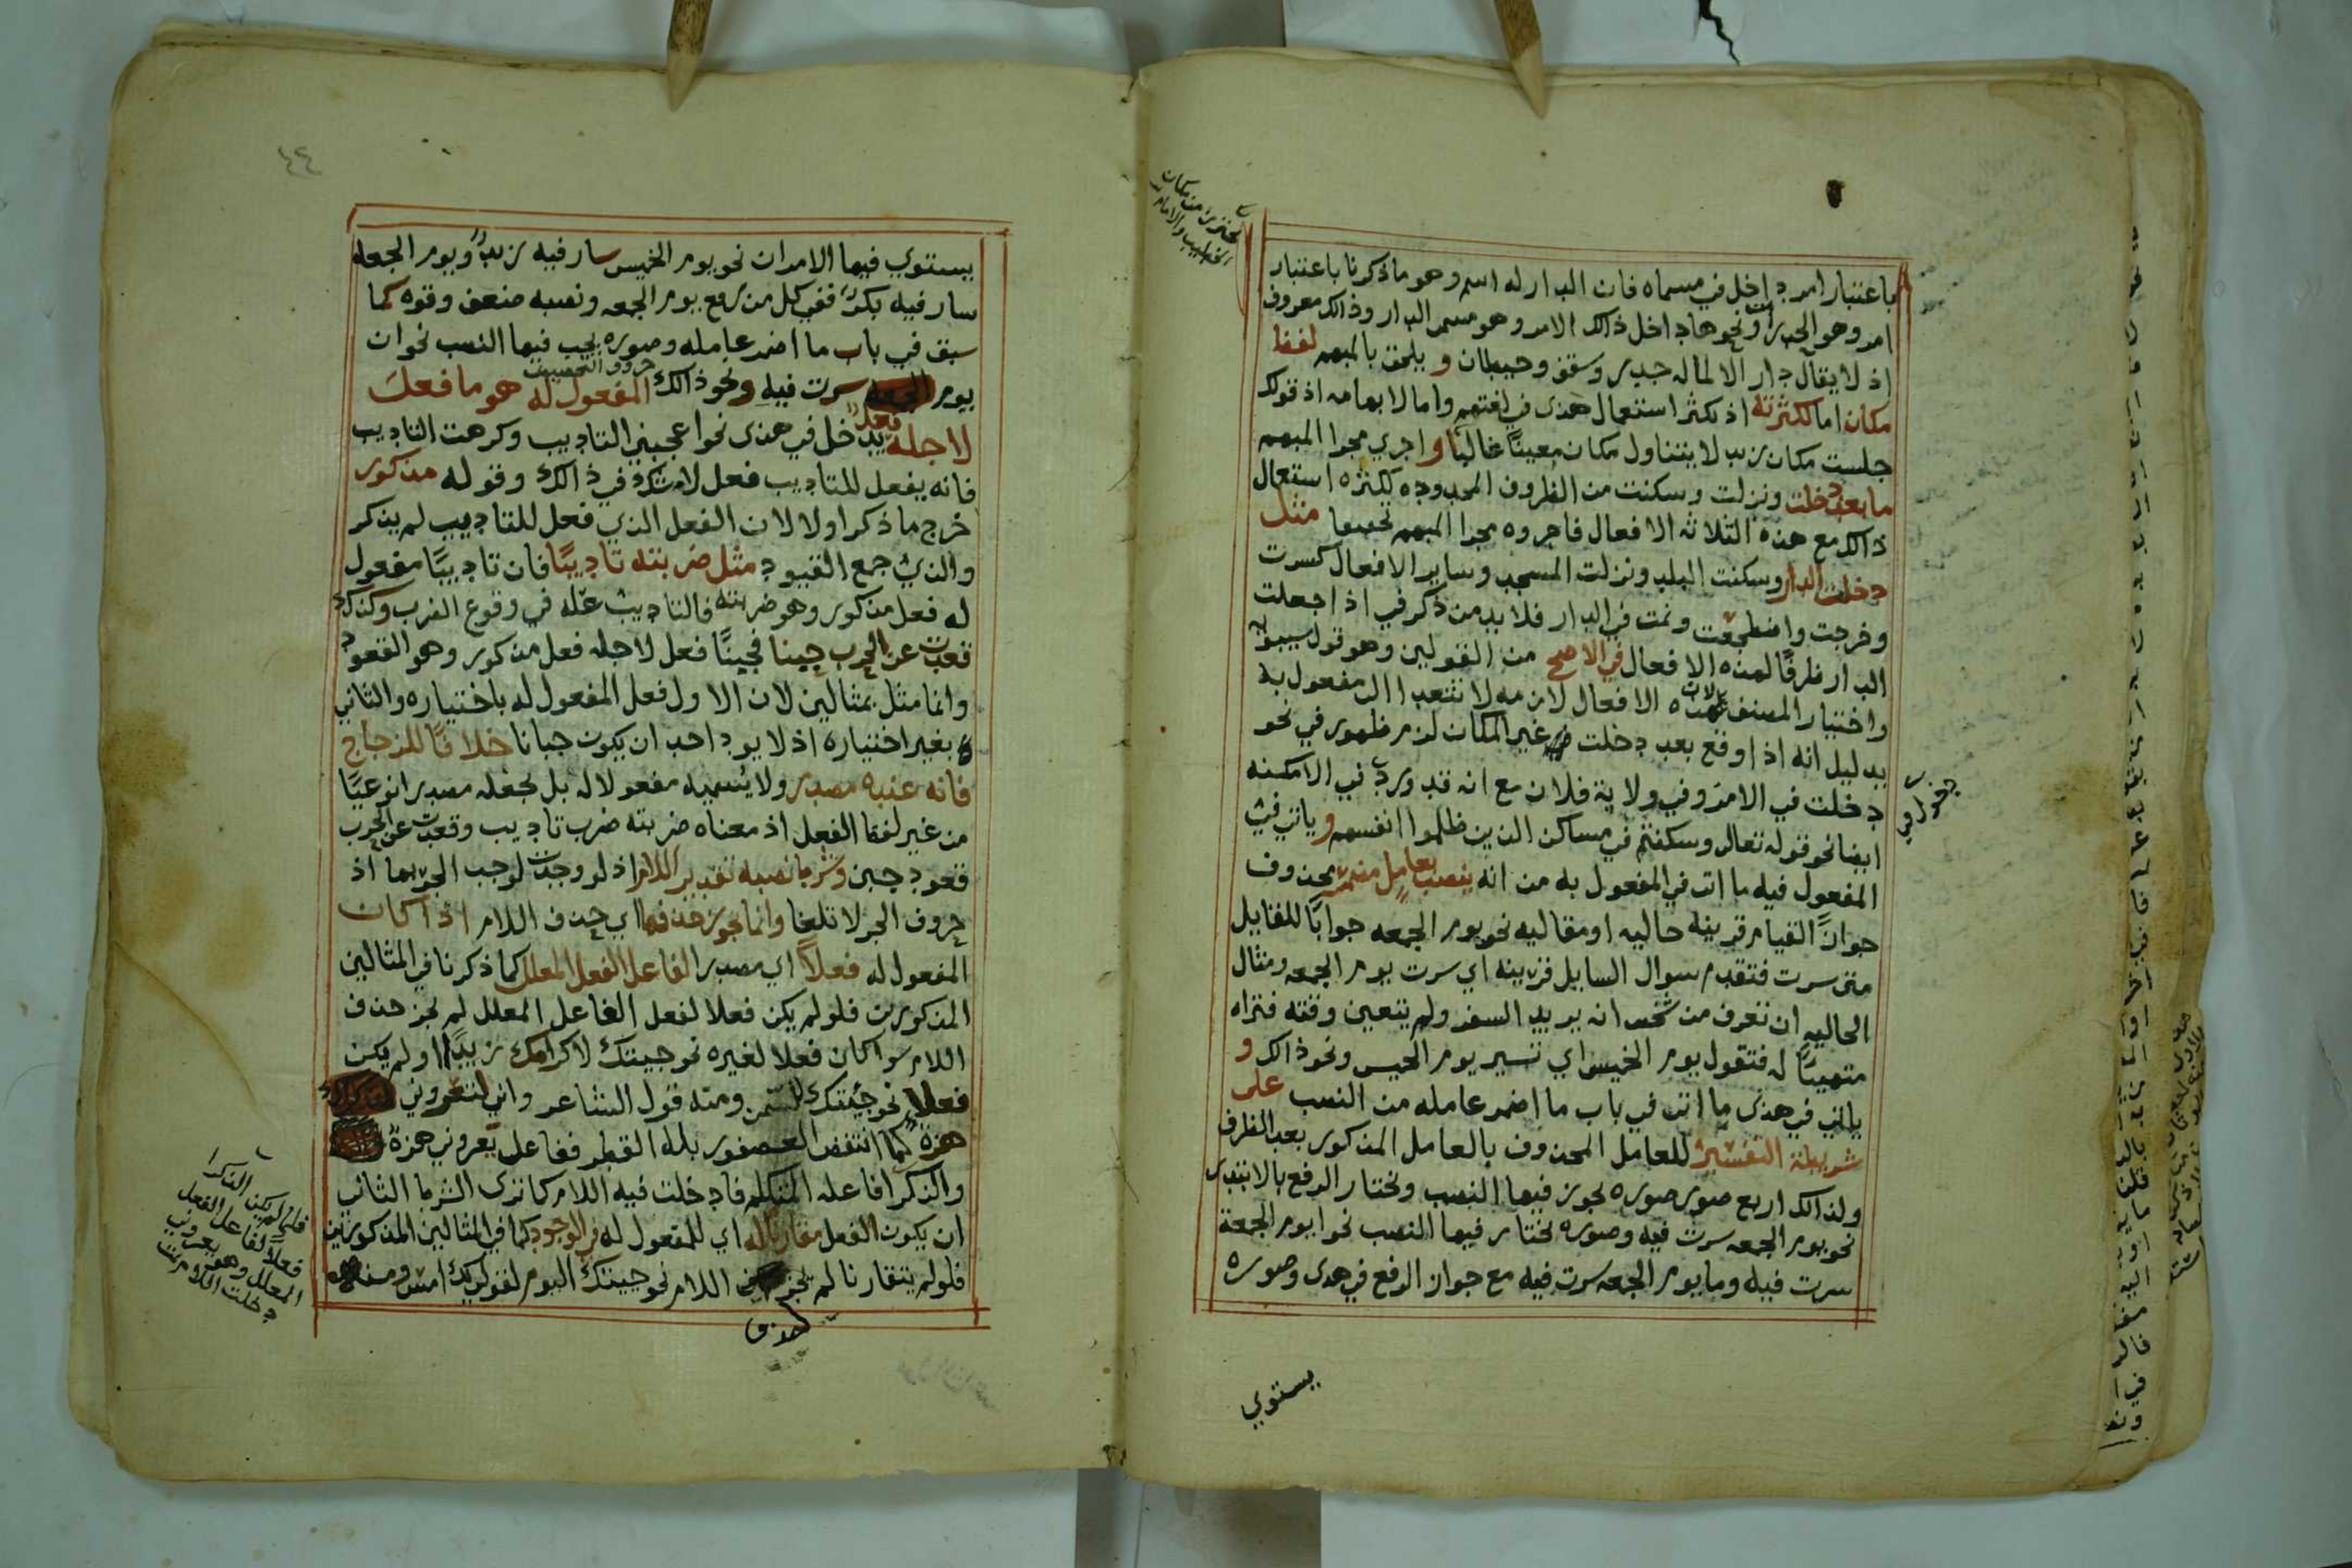 باعتبار امر داخل في مسماه فان الدار له اسم وهو ما ذكرنا باعتبار
امر وهو الجدرات ونحوها داخل ذالك الامر وهو مسمى الدار وذالك معروف
اذ لا يقال دار الا لماله جدر وسقف وحيطان و يلحق بالمبهم لفظ
مكان اما لكثرته اذ يكثر استعمال هذى في لغتهم واما لابهامه اذ قولك
جلست مكان زيد لا يتناول مكان معينًا غالبًا و اجري مجرا المبهم
ما بعد دخلت ونزلت وسكنت من الظروف المحدوده لكثره استعمال
ذالك مع هذه الثلاثه الافعال فاجروه مجرا المبهم تخفيفا مثل
دخلت الدار وسكنت البلد ونزلت المسجد وساير الافعال كسرت
وخرجت واضطجعت ونمت في الدار فلا بد من ذكر في اذا جعلت
الدار ظرفًا لهذه الافعال في الاصح من القولين وهو قول سيبويه
واختيار المصنف لان هذه الافعال لازمه لا تتعدا الى مفعول به
بدليل انه اذا وقع بعد دخلت غير المكان لزم ظهور في نحو
دخلت في الامر وفي ولاية فلان مع انه قد ورد في الامكنه
ايضا نحو قوله تعالى وسكنتم في مساكن الذين ظلموا انفسهم و ياتي في
المفعول فيه ما اتى في المفعول به من انه ينصب بعامل مضمر محذوف
جوازًا لقيام قرينه حاليه او مقاليه نحو يوم الجمعه جوابًا للقايل
متى سرت فتقدم سوال السايل قرينه اي سرت يوم الجمعه ومثال
الحاليه ان تعرف من شخص انه يريد السفر ولم يتعين وقته فتراه
متهيئًا له فتقول يوم الخميس اي تسير يوم الخميس ونحو ذالك و
ياتي في هذى ما اتى في باب ما اضمر عامله من النصب على
شريطة التفسير للعامل المحذوف بالعامل المذكور بعد الظرف
ولذالك اربع صور صوره يجوز فيها النصب ويختار الرفع بالابتدى
نحو يوم الجمعه سرت فيه وصوره يختار فيها النصب نحو ايوم الجمعة
سرت فيه وما يوم الجمعه سرت فيه مع جواز الرفع في هذى وصوره
يستوي
دخول في
٤٤
يستوي فيها الامران نحو يوم الخميس سار فيه زيد ويوم الجمعه
سار فيه بكر ففي كل من رفع يوم الجمعه ونصبه ضعف وقوه كما
سبق في باب ما اضمر عامله وصوره يجب فيها النصب نحو ان
حروف التحضيض
يوم الجمعه سرت فيه ونحو ذالك المفعول له هو ما فعل
لاجله فعل يدخل في هذى نحو اعجبني التاديب وكرهت التاديب
فانه يفعل للتاديب فعل لا شك في ذالك وقوله مذكور
خرج ما ذكر اولا لان الفعل الذي فعل للتاديب لم يذكر
والذي جمع القيود مثل ضربته تاديبًا فان تاديبًا مفعول
له فعل مذكور وهو ضربته فالتاديب علة في وقوع الضرب وكذلك
قعدت عن الحرب جبنا فجبنًا فعل لاجله فعل مذكور وهو القعود
وانما مثل بمثالين لان الاول فعل المفعول له باختياره والثاني
بغير اختياره اذ لا يود احد ان يكون جبانا خلافًا للزجاج
فانه عنده مصدر ولا يسميه مفعولا له بل يجعله مصدرا نوعيًا
من غير لفظ الفعل اذ معناه ضربته ضرب تاديب وقعدت عن الحرب
قعود جبن وشرط نصبه تقدير اللام اذ لو وجدت لوجب الجر بها اذ
حروف الجر لا تلغا وانما يجوز حذفها اي حذف اللام اذا كان
المفعول له فعلاً اي مصدرا لفاعل الفعل المعلل كما ذكرنا في المثالين
المذكورين فلو لم يكن فعلا لفعل الفاعل المعلل لم يجز حذف
اللام سوا كان فعلا لغيره نحو جيتك لاكرامك زيدًا او لم يكن
فعلا نحو جئتك للسمن ومنه قول الشاعر واني لتعروني
هزة كما انتفض العصفور بلله القطر ففاعل تعروني هزة
والذكرا فاعله المتكلم فادخلت فيه اللام كما ترى الشرط الثاني
ان يكون الفعل مقارنًا له اي للمفعول له في الوجود كما في المثالين المذكورين
فلو لم يتقارنا لم يجز اللام نحو جيتك اليوم لقولك امس ومنه
حذف
فلما لم يكن الذكرا
فعلاً لفاعل الفعل
المعلل وهو يعروني
دخلت اللام